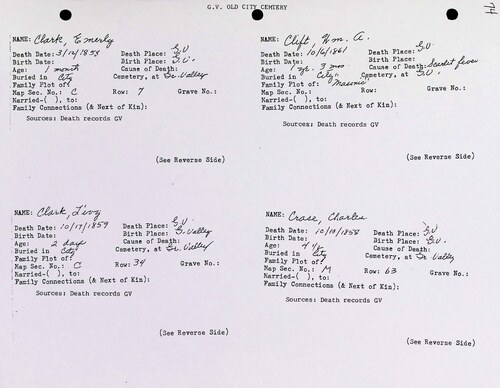 G.V. OLD CITY CEMTERY
74
NAME: Clark, Emerly
Death Date: 3/12/1858 Death Place: G.V.
Birth Date: Birth Place: G.V.
Age: 1 month Cause of Death:
Buried in City Cemetery, at Gr. Valley
Family Plot of:
Map Sec. No.: C Row: 7 Grave No.:
Married-( ), to:
Family Connections (& Next of Kin):
Sources: Death records GV
(See Reverse Side)
NAME: Clift, Wm. A.
Death Date: 10/6/1861 Death Place: G.V.
Birth Date: Birth Place:
Age: 1 yr. 3 mos Cause of Death: Scarlet fever
Buried in "City" Cemetery, at G.V.
Family Plot of: "Masonic"
Map Sec. No.: Row: Grave No.:
Married-( ), to:
Family Connections (& Next of Kin):
Sources: Death records GV
(See Reverse Side)
NAME: Clark,
Death Date: 10/17/1859 Death Place: G.V.
Birth Date: Birth Place: G. Valley
Age: 2 days Cause of Death:
Buried in City Cemetery, at Gr. Valley
Family Plot of:
Map Sec. No.: C Row: 34 Grave No.:
Married-( ), to:
Family Connections (& Next of Kin):
Sources: Death records GV
(See Reverse Side)
NAME: Crase, Charles
Death Date: 10/18/1858 Death Place: G.V.
Birth Date: Birth Place: G.V.
Age: Cause of Death:
Buried in City Cemetery, at Gr. Valley
Family Plot of:
Map Sec. No.: M Row: 63 Grave No.:
Married-( ), to:
Family Connections (& Next of Kin):
Sources: Death records GV
(See Reverse Side)